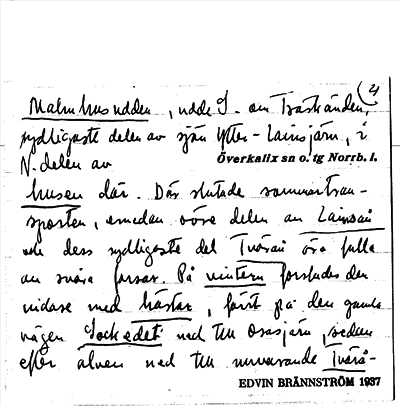 21
Malmhusudden, udde S. om Traskänden,
sydligaste delen av sjön Ytter-Lainsjärv, i
N. delen av Överkalix sn o. tg Norrb. l.
husen där. Där slutade sommartran-
sporten, emedan övre delen av Lainaån
och dess sydligaste del Tvärån äro fulla
av svåra forsar. På vintern forslades den
vidare med hästar, först på den gamla
vägen ned till Orasjärv, sedan
efter älven ned till nuvarande Tvärå-
EDVIN BRÄNNSTRÖM 1937